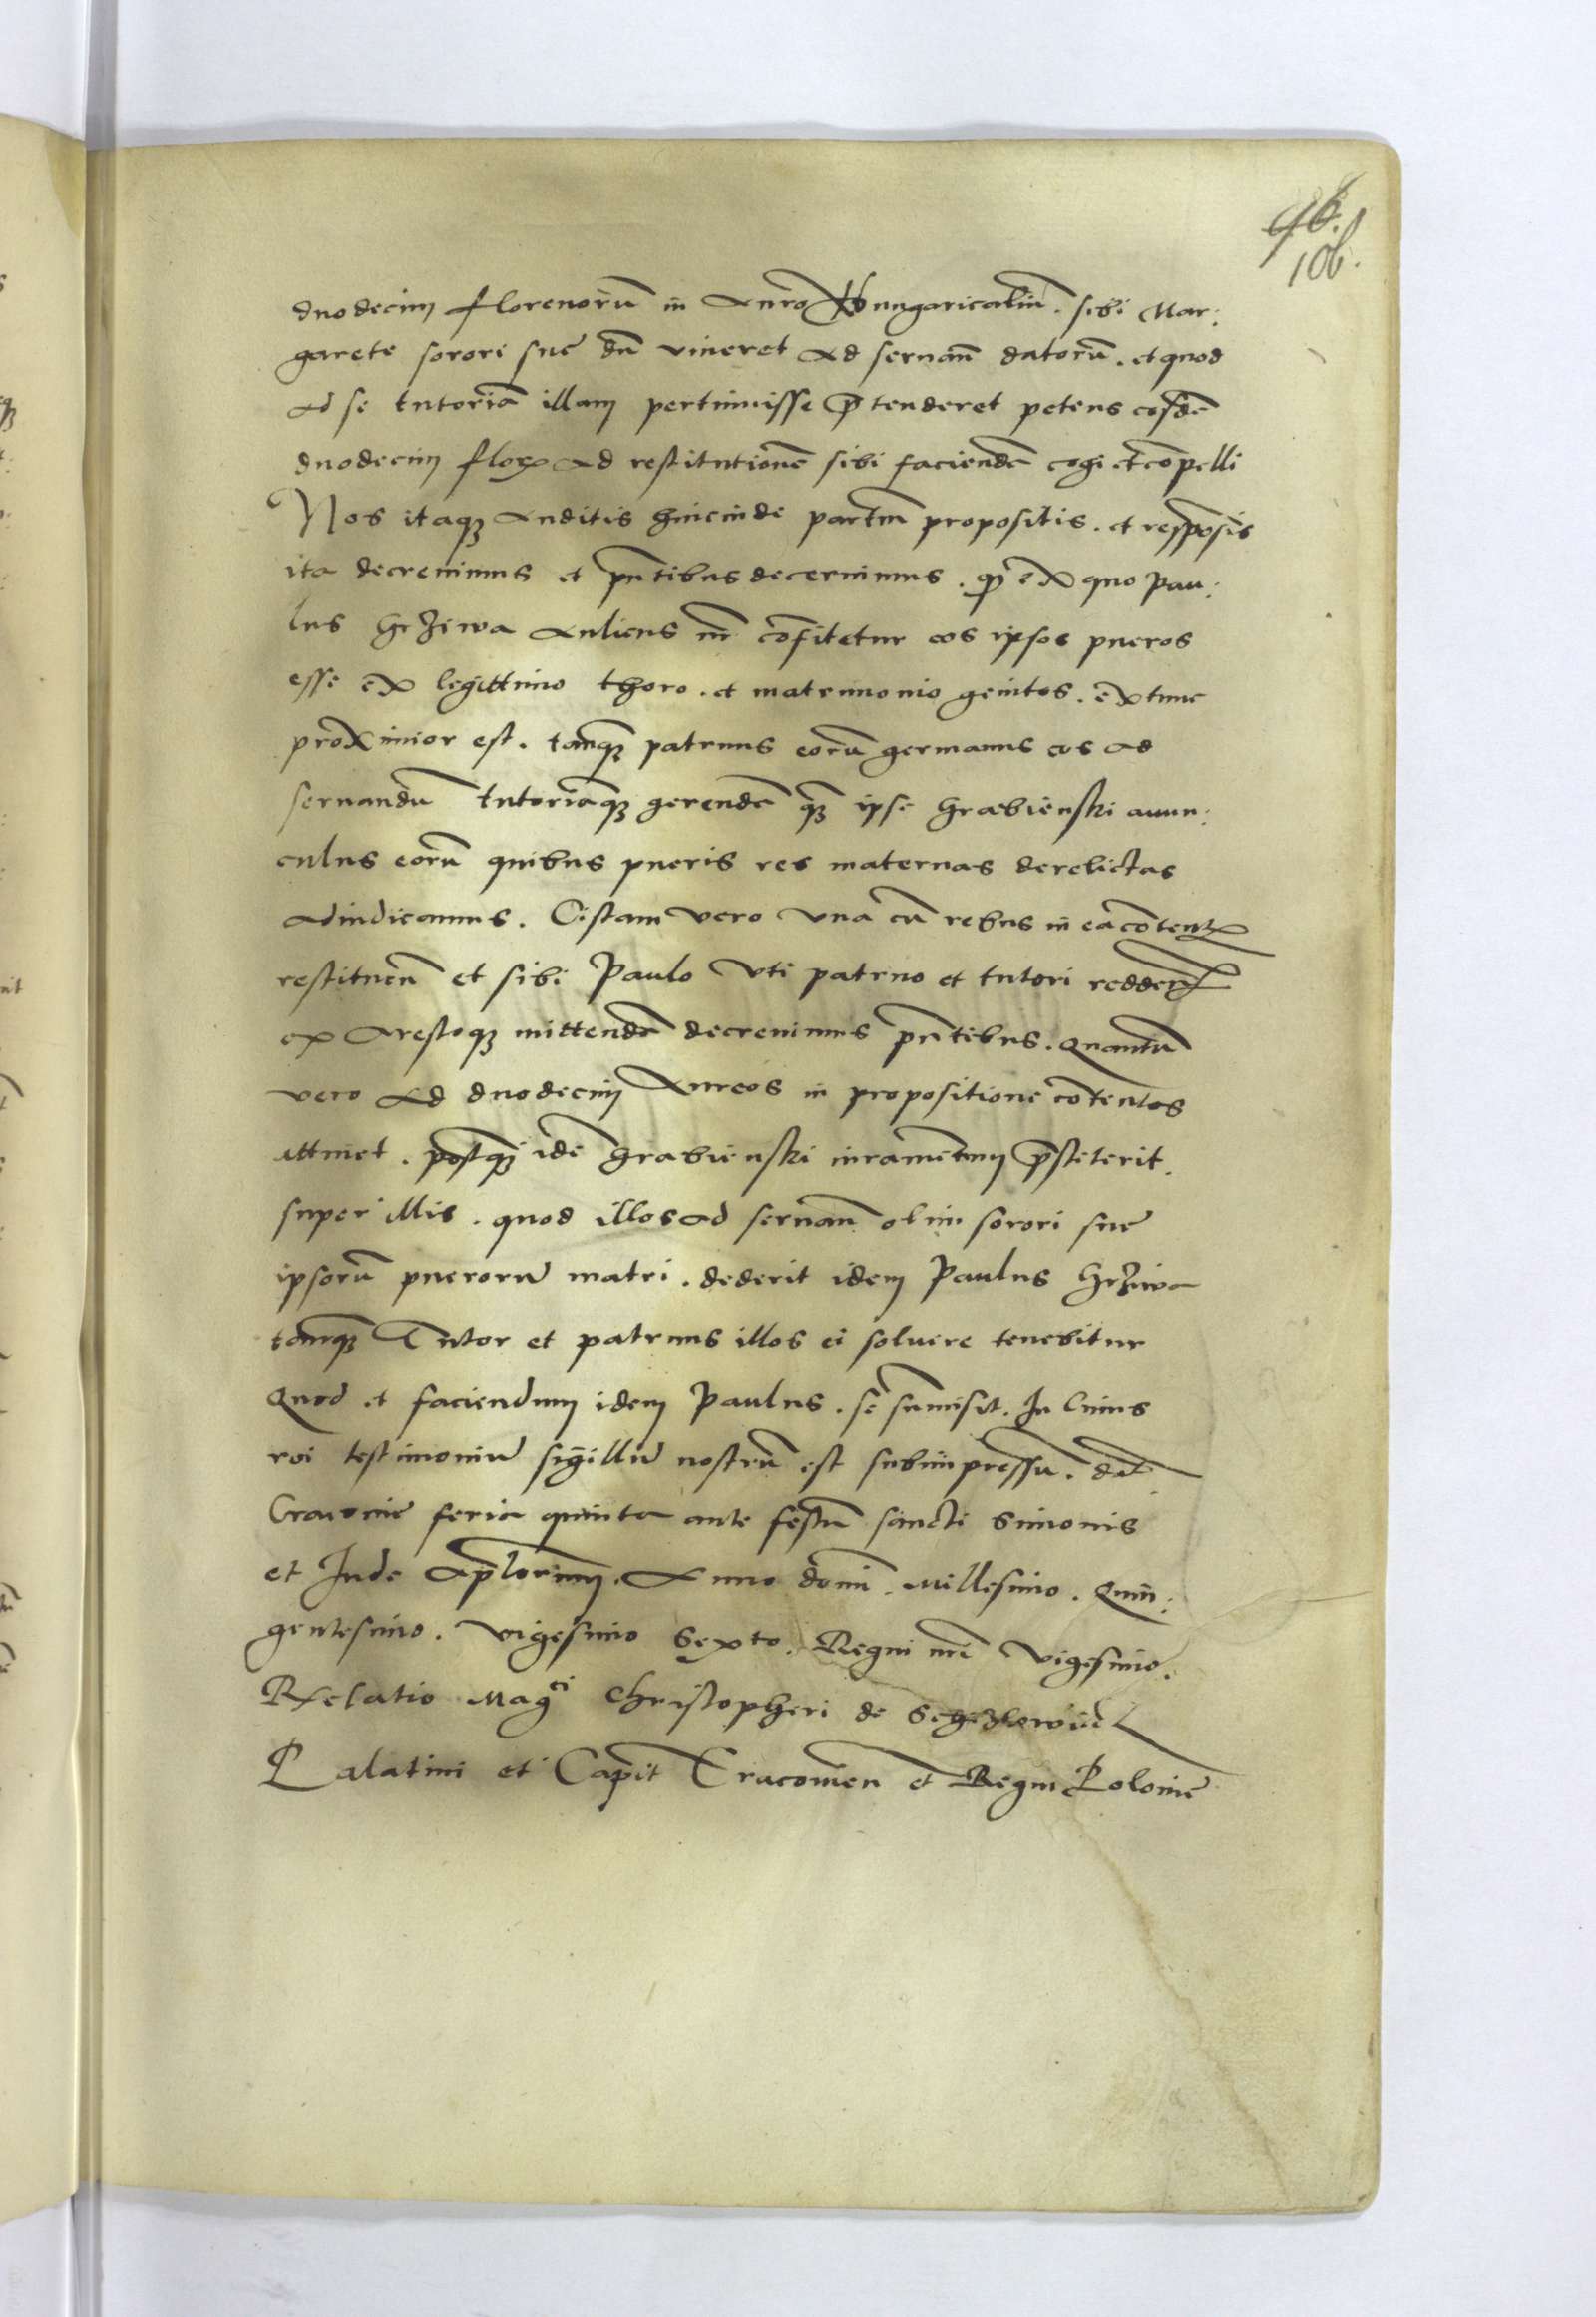 96.
106.
duodecim florenorũ in Auro Hungaricaliũ. sibi Mar:
garete sorori sue dũ viueret Ad seruañ datorũ. et quod
Ad se tutoriã illam pertinuisse p̃tenderet petens eosdẽ
duodecim floꝝ Ad restitutionẽ sibi faciendã cogi et cõpelli
Nos itaqꝫ Auditis hincinde partiũ propositis. et respõsis
ita decreuimus et pñtibus decernimus. qͥ ex quo Pau:
lus Grziwa Aulicus nr̃ cõfitetur eos ipsos pueros
esse ex legittimo thoro. et matrimonio genitos. extunc
proximior est. tanqꝫ patruus eorũ germanus eos ad
seruandũ tutoriãqꝫ gerendã qꝫ ipse Grabienski auun:
culus eorũ quibus pueris res maternas derelictas
Adiudicamus. Cistam vero vna cũ rebus in ea cõtentꝭ
restitueñ et sibi Paulo vti patruo et tutori reddeñ
ex Arestoqꝫ mittendã decreuimus pñtibus. Quantũ
vero Ad duodecim Aureos in propositione cõtentos
attinet. postqꝫ idẽ Grabienski iuramentum p̃stiterit.
super illis. quod illos ad seruañ olim sorori sue
ipsorũ puerorũ matri. dederit idem Paulus Grziwa
tanqꝫ Tutor et patruus illos ei soluere tenebitur
Quod et faciendum idem Paulus. se sũmisit. In Cuius
rei testimoniũ sigillũ nostrũ est subimpressũ. dat̃
Cracouie feria quinta ante festũ sancti Simonis
et Jude Apl̃orum. Anno domĩ. Millesimo. Quin:
gentesimo. vigesimo Sexto. Regni nr̃i vigesimo.
Relatio Mag^ci Christopheri de Schidlowiecz
Palatini et Capit̃ Cracouieñ et Regni Polonie